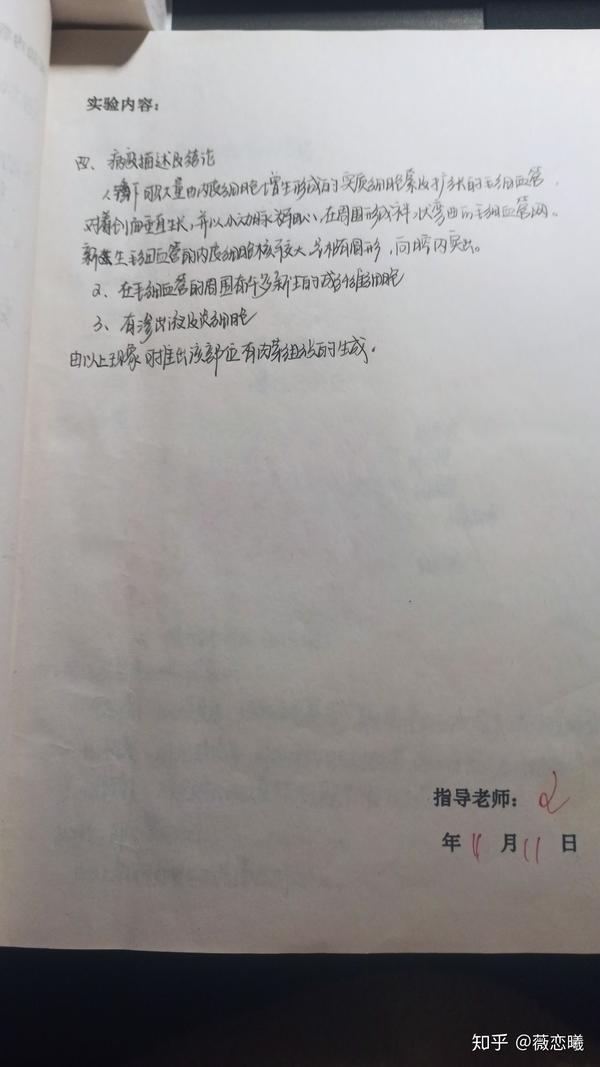 实验内容：
四、病变描述及结论
1、镜下可见大量由内皮细胞增生形成的实质细胞索及扩张的毛细血管，
对着创面垂直生长，并以小动脉为轴心，在周围形成袢状弯曲的毛细血管网。
新生毛细血管的内皮细胞核较大，呈椭圆形，向腔内突出。
2、在毛细血管的周围有许多新生的成纤维细胞
3、有渗出液及炎细胞
由以上现象可推出该部位有肉芽组织的生成。
指导老师：
年 11 月 11 日
知乎 @薇恋曦